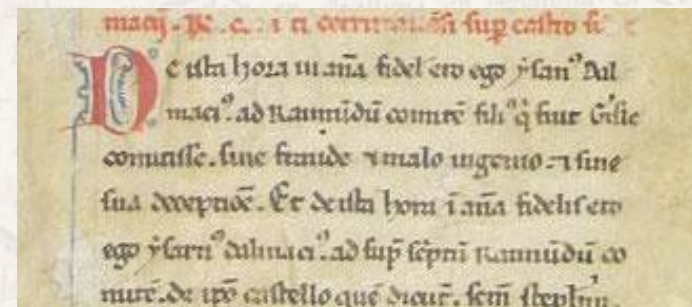 macij. R. c. ⁊ ei comitisse sup castro
De ista hora in añã fidel ero ego ysarnꝰ Dal
maciꝰ. ad Raimũdũ comitẽ filiꝰ q̃ fuit Gisle
comitisse. sine fraude ⁊ malo ingenio. ⁊ sine
sua deceptiõe. Et de ista hora ĩ añã fidelis ero
ego ysarnꝰ dalmaciꝰ. ad sup̃ sc̃ptũ Raimũdũ co
mitẽ. de ip̃o castello que dicũt. sc̃m steph̃m